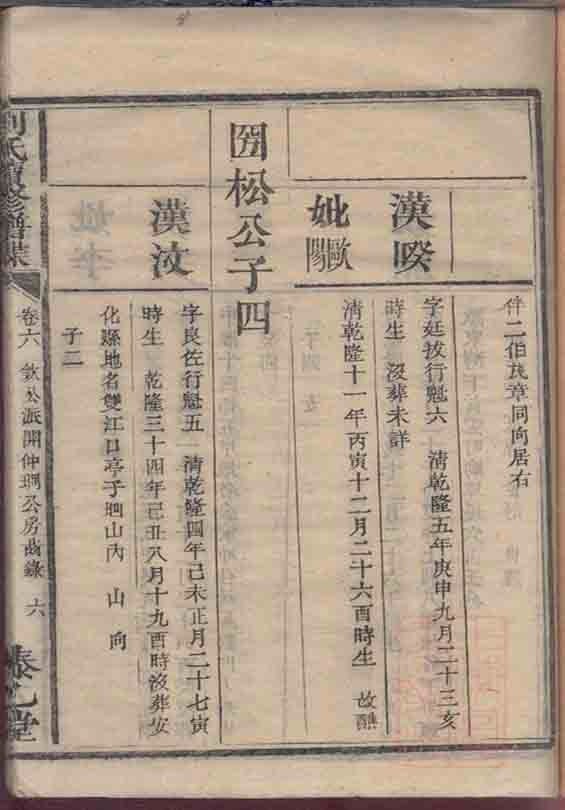 伴二伯茂章同向居右
漢暌
字廷拔行魁六 清乾隆五年庚申九月二十三亥
時生 沒葬未詳
妣歐陽
清乾隆十一年丙寅十二月二十六酉時生 改醮
松公子四
漢汶
字良佐行魁五 清乾隆四年己未正月二十七寅
時生 乾隆三十四年己丑八月十九酉時沒葬安
化縣地名雙江口亭子山內 山 向
子二
劉氏續修譜牒
卷六 敦公派開仲公房齒錄 六
堂